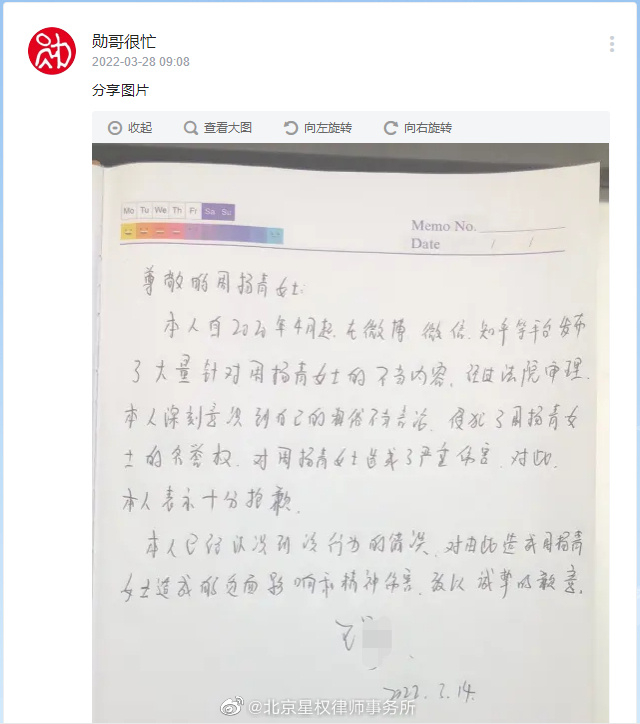 勋哥很忙
2022-03-28 09:08
分享图片
收起 查看大图 向左旋转 向右旋转
Mo Tu We Th Fr Sa Su
Memo No.
Date / /
尊敬的周扬青女士:
本人自2020年4月起,在微博、微信、知乎等平台发布
了大量针对周扬青女士的不当内容,经过法院审理,
本人深刻意识到自己的不当言论,侵犯了周扬青女
士的名誉权,对周扬青女士造成了严重伤害,对此,
本人表示十分抱歉。
本人已经认识到次行为的错误,对由此造成周扬青
女士造成的负面影响和精神伤害,致以诚挚的歉意。
王
2022.2.14.
@北京星权律师事务所